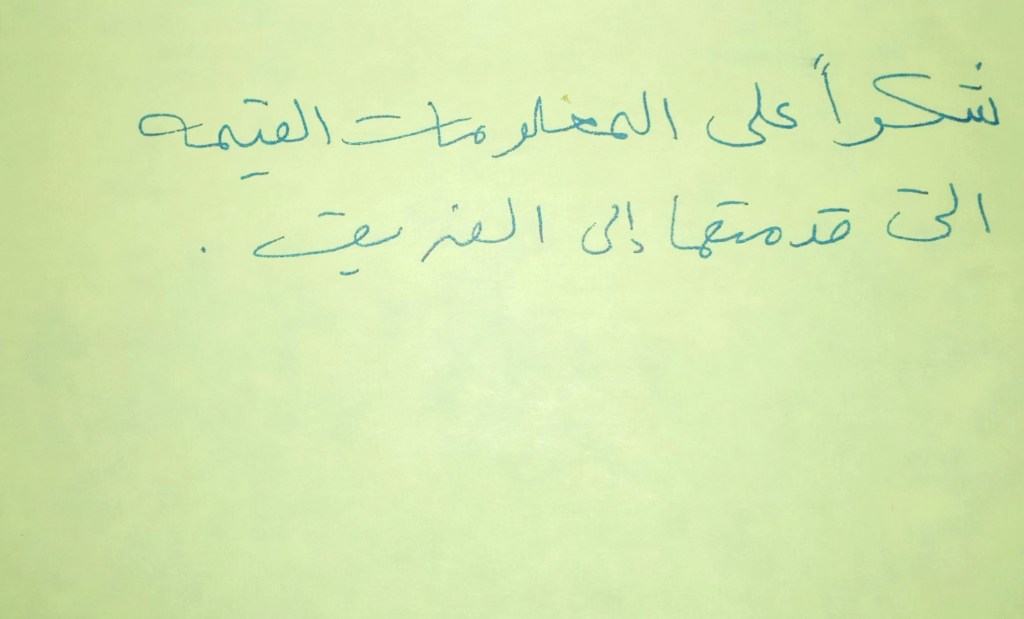 شكراً على المعلومات القيمه
التى قدمتها إلى الفريق .